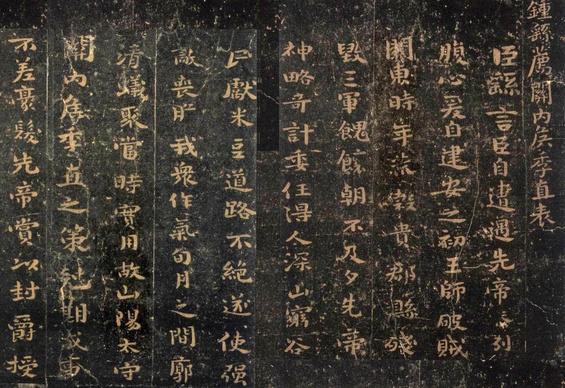 鍾繇薦關內侯季直表
臣繇言臣自遭遇先帝忝列
腹心爰自建安之初王師破賊
關東時年荒穀貴郡縣殘
毀三軍餽饟朝不及夕先帝
神略奇計委任得人深山窮谷
民獻米豆道路不絕遂使强
敵喪膽我衆作氣旬月之間廓
清蟻聚當時實用故山陽太守
關内侯季直之策尅期成事
不差豪髮先帝賞以封爵授